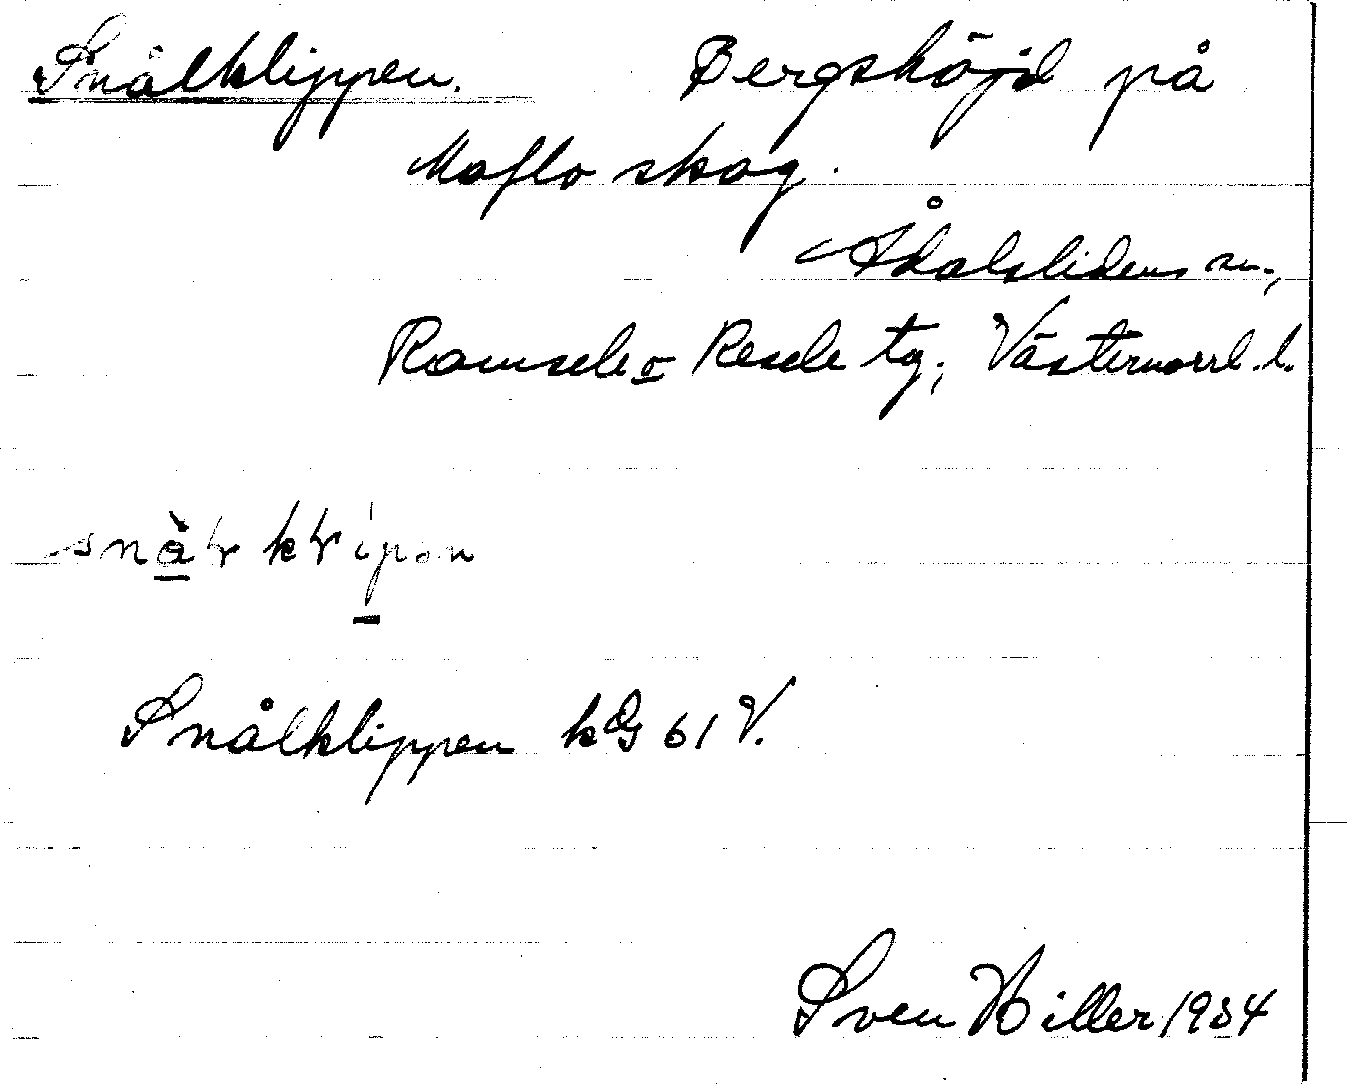 Snålklippen. Bergshöjd på
Moflo skog.
Ådalslidens sn.,
Ramsele o Resele tg., Västernorrl. l.
Snålklippen kG 61 V.
Sven Hiller 1934